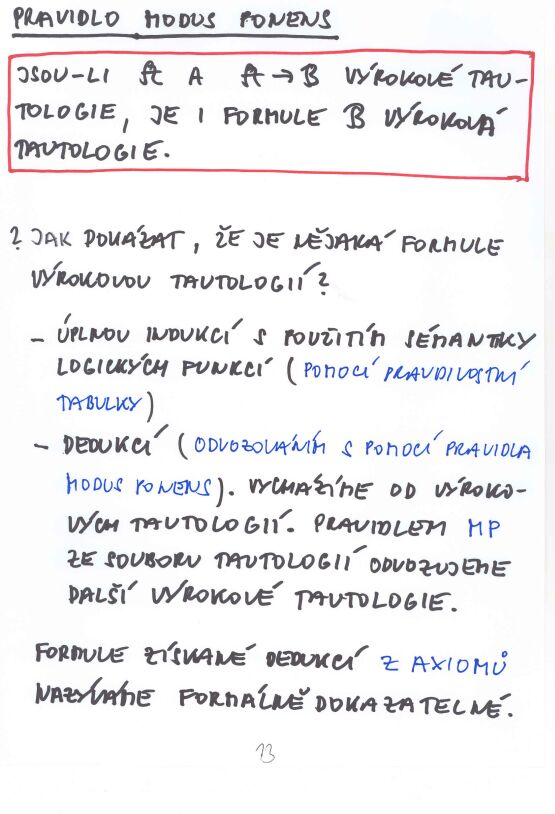 PRAVIDLO MODUS PONENS
JSOU-LI A A A → B VÝROKOVÉ TAU-
TOLOGIE, JE I FORMULE B VÝROKOVÁ
TAUTOLOGIE.
? JAK DOKÁZAT, ŽE JE NĚJAKÁ FORMULE
VÝROKOVOU TAUTOLOGIÍ?
- ÚPLNOU INDUKCÍ S POUŽITÍM SÉMANTIKY
LOGICKÝCH FUNKCÍ (POMOCÍ PRAVDIVOSTNÍ
TABULKY)
- DEDUKCÍ (ODVOZOVÁNÍM S POMOCÍ PRAVIDLA
MODUS PONENS). VYCHÁZÍME OD VÝROKO-
VÝCH TAUTOLOGIÍ. PRAVIDLEM MP
ZE SOUBORU TAUTOLOGIÍ ODVOZUJEME
DALŠÍ VÝROKOVÉ TAUTOLOGIE.
FORMULE ZÍSKANÉ DEDUKCÍ Z AXIOMŮ
NAZÝVÁME FORMÁLNĚ DOKAZATELNÉ.
13